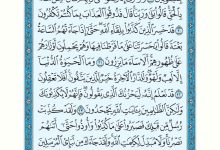 بِٱلْحَقِّ قَالُوا۟ بَلَىٰ وَرَبِّنَا قَالَ فَذُوقُوا۟ ٱلْعَذَابَ بِمَا كُنتُمْ تَكْفُرُونَ
قَدْ خَسِرَ ٱلَّذِينَ كَذَّبُوا۟ بِلِقَآءِ ٱللَّهِ حَتَّىٰٓ إِذَا جَآءَتْهُمُ ٱلسَّاعَةُ
بَغْتَةً قَالُوا۟ يَٰحَسْرَتَنَا عَلَىٰ مَا فَرَّطْنَا فِيهَا وَهُمْ يَحْمِلُونَ أَوْزَارَهُمْ
عَلَىٰ ظُهُورِهِمْ أَلَا سَآءَ مَا يَزِرُونَ وَمَا ٱلْحَيَوٰةُ ٱلدُّنْيَآ
إِلَّا لَعِبٌ وَلَهْوٌ وَلَلدَّارُ ٱلْءَاخِرَةُ خَيْرٌ لِّلَّذِينَ يَتَّقُونَ أَفَلَا تَعْقِلُونَ
قَدْ نَعْلَمُ إِنَّهُۥ لَيَحْزُنُكَ ٱلَّذِى يَقُولُونَ فَإِنَّهُمْ لَا يُكَذِّبُونَكَ
وَلَٰكِنَّ ٱلظَّٰلِمِينَ بِـَٔايَٰتِ ٱللَّهِ يَجْحَدُونَ وَلَقَدْ كُذِّبَتْ
رُسُلٌ مِّن قَبْلِكَ فَصَبَرُوا۟ عَلَىٰ مَا كُذِّبُوا۟ وَأُوذُوا۟ حَتَّىٰٓ أَتَىٰهُمْ
نَصْرُنَا وَلَا مُبَدِّلَ لِكَلِمَٰتِ ٱللَّهِ وَلَقَدْ جَآءَكَ مِن نَّبَإِى۟ ٱلْمُرْسَلِينَ